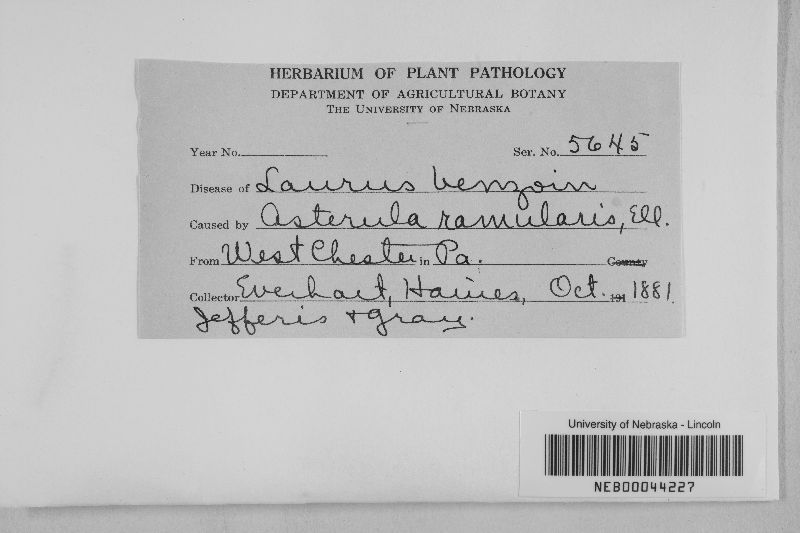 HERBARIUM OF PLANT PATHOLOGY
DEPARTMENT OF AGRICULTURAL BOTANY
THE UNIVERSITY OF NEBRASKA
Year No. Ser. No. 5645
Disease of Laurus benzoin
Caused by Asterula ramularis, Ell.
From West Chester in Pa. County
Collector Everhart, Haines, Oct. 191 1881
Jefferis + Gray.
University of Nebraska - Lincoln
NEB00044227